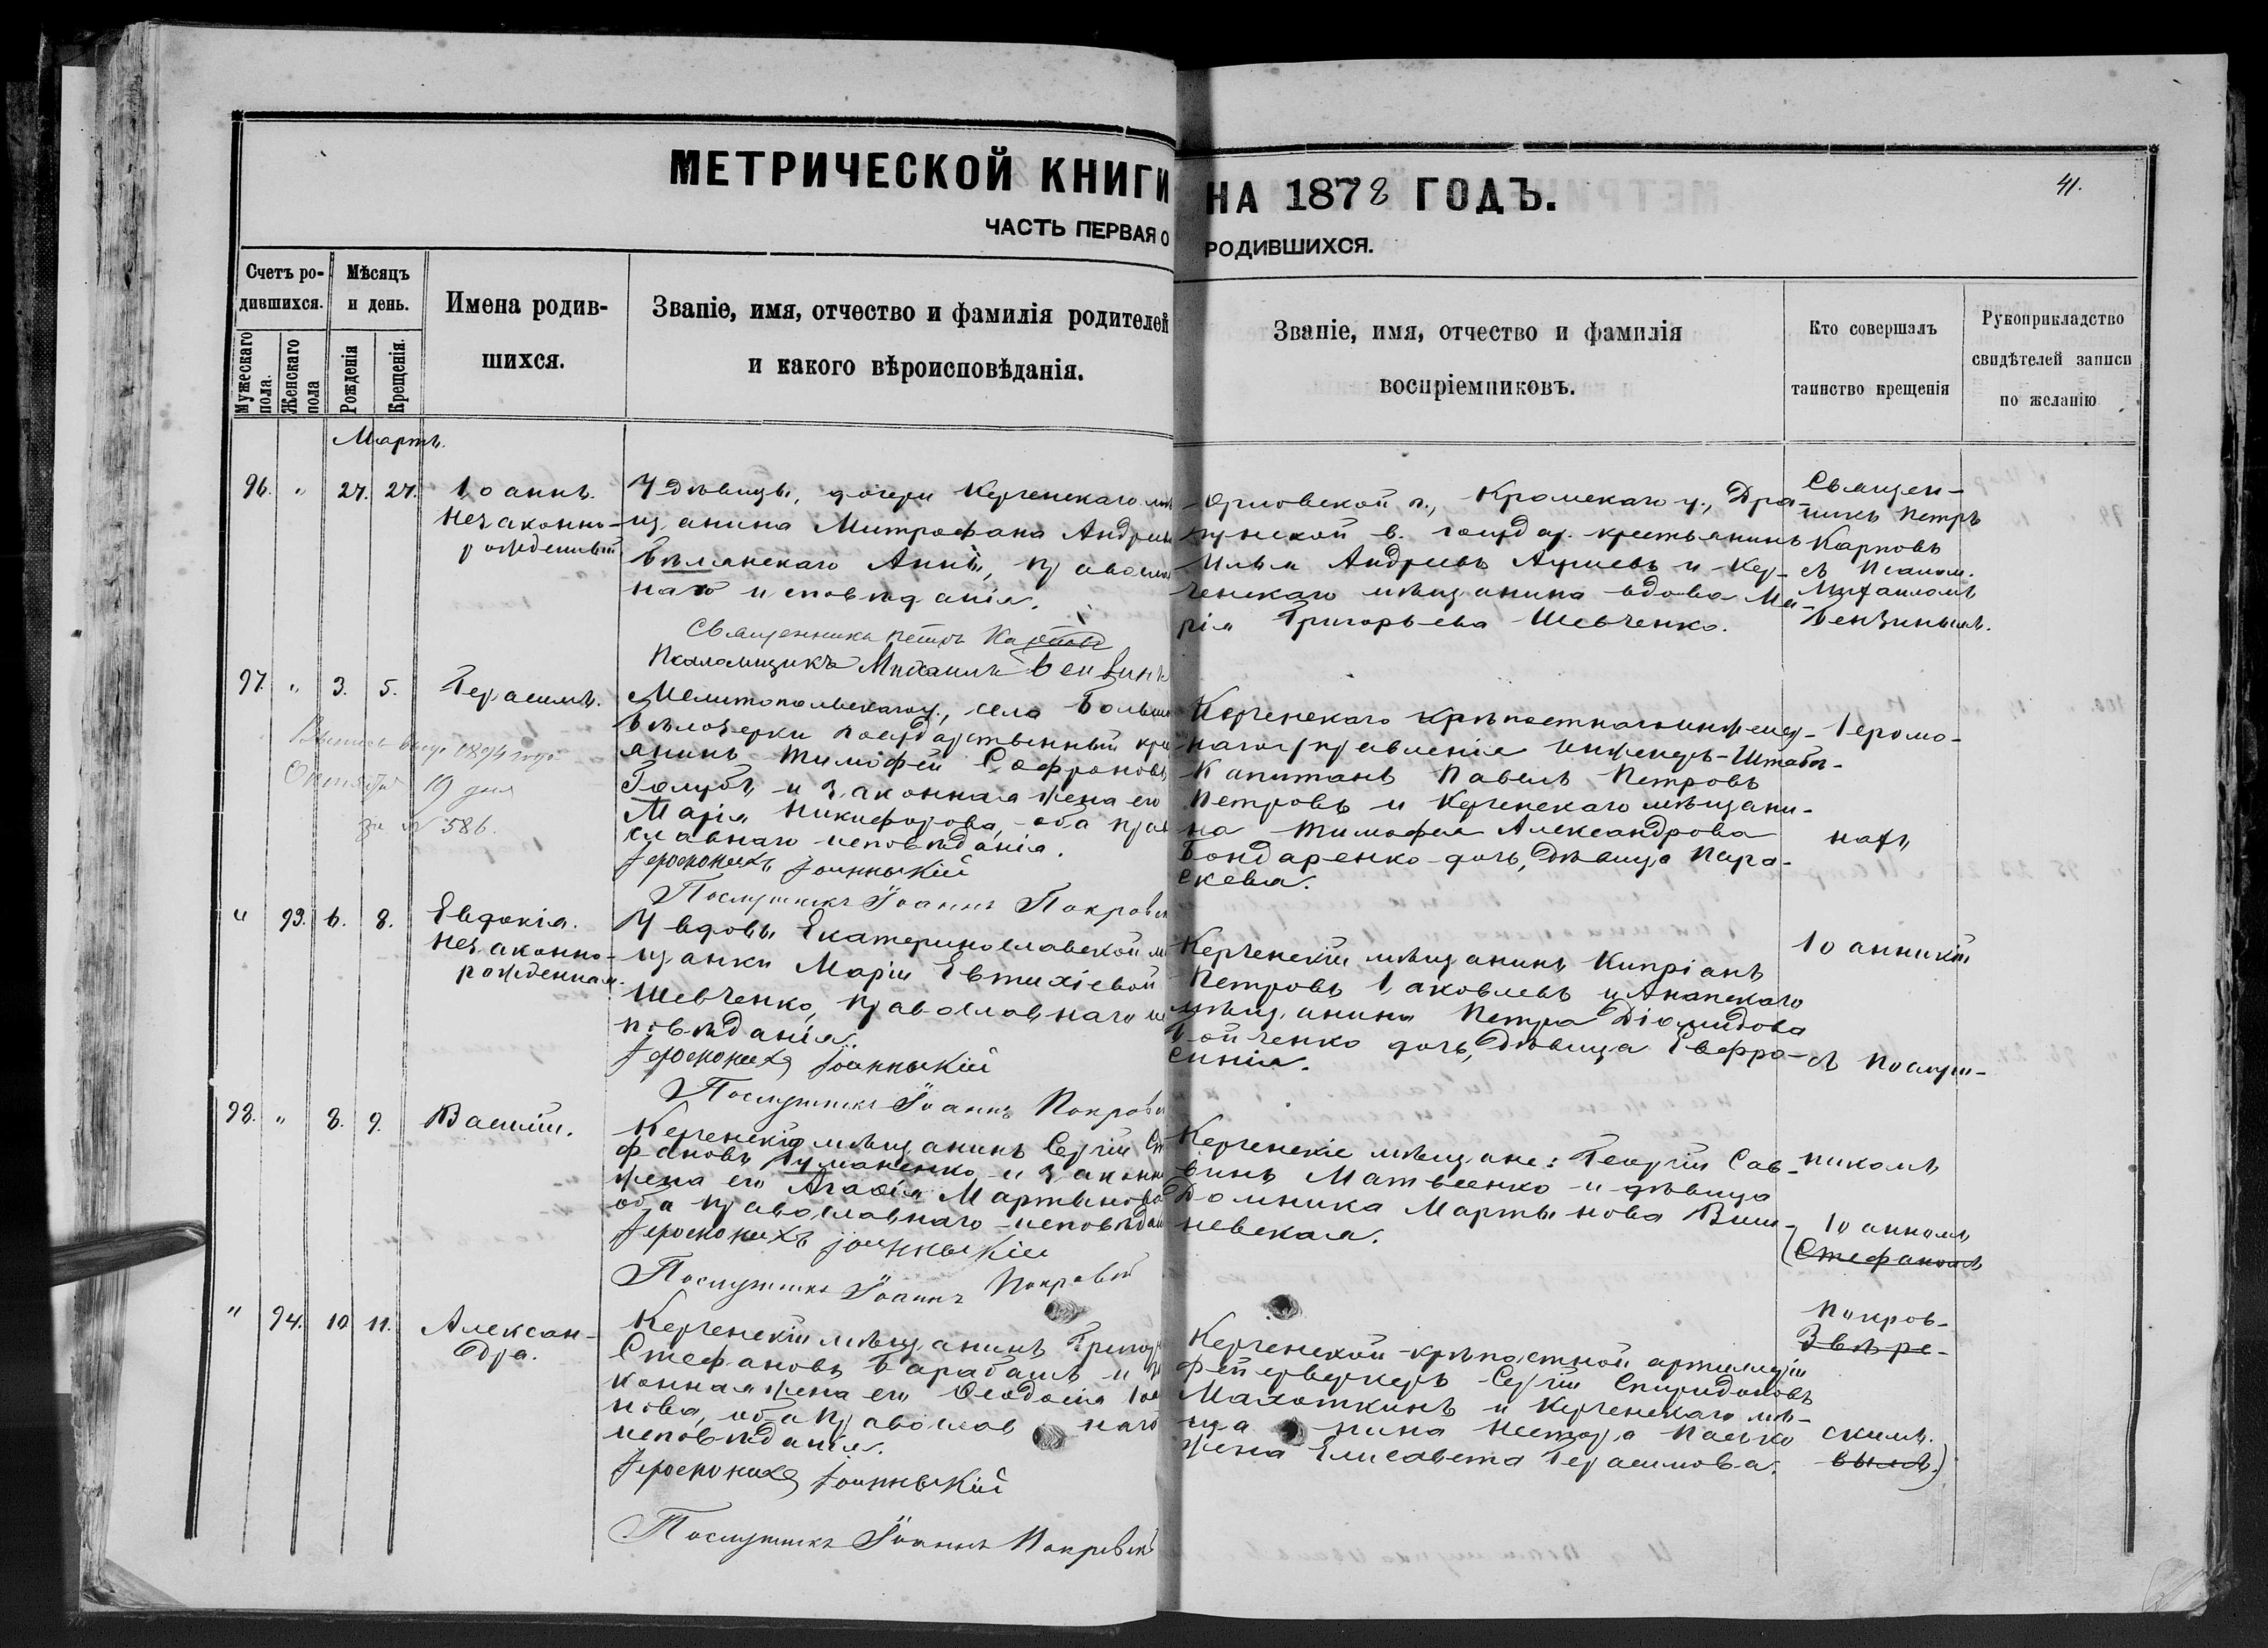 МЕТРИЧЕСКОЙ КНИГИ НА 1878 ГОДЪ.
41.
ЧАСТЬ ПЕРВАЯ О РОДИВШИХСЯ.
Счетъ ро-
дившихся.
Мужескаго пола.
Женскаго пола
Мѣсяцъ
и день.
Рожденія
Крещенія.
Имена родив-
шихся.
Званіе, имя, отчество и фамилія родителей
и какого вѣроисповѣданія.
Званіе, имя, отчество и фамилія
воспріемниковъ.
Кто совершалъ
таинство крещенія
Рукоприкладство
свидѣтелей записи
по желанію
Мартъ.
96. " 27. 27.
Іоаннъ.
Незаконно-
рожденный
У дѣвицы, дочери Керченскаго мѣ
щанина Митрофана Андреев
Бѣлянскаго Анны, православ
наго исповѣданія.
Священникъ Петръ Карповъ
Псаломщикъ Михаилъ Бензинъ
Орловской г., Кромскаго у., Дра-
гунской в. государ. крестьянинъ
Илья Андреевъ Агиевъ и Кер-
ченскаго мѣщанина вдова Ма-
рія Григорьева Шевченко.
Священ-
никъ Петръ
Карповъ
съ Псалом.
Михаиломъ
Бензинымъ.
97. " 3. 5.
Герасимъ.
Выпись выд. 1894 года
Октября 19 дня
за № 586.
Мелитопольскаго у., села Больш
Бѣлозерки государственный крес
янинъ Тимофей Софроновъ
Голубъ и законная жена его
Марія Никифорова, оба прав
славнаго исповѣданія.
Іеромонахъ Іоанникій
Послушникъ Іоаннъ Покровск
Керченскаго крѣпостнаго инженер-
наго управленія Инженеръ-Штабсъ-
Капитанъ Павелъ Петровъ
Петровъ и Керченскаго мѣщани-
на Тимофея Александрова
Бондаренко дочь, дѣвица Пара-
скева.
Іеромо-
нахъ
" 93. 6. 8.
Евдокія.
Незаконно-
рожденная.
У вдовы Екатеринославской мѣ
щанки Маріи Евтихіевой
Шевченко, православнаго ис
повѣданія.
Іеромонахъ Іоанникій
Послушникъ Іоаннъ Покровск
Керченскій мѣщанинъ Кипріанъ
Петровъ Іаковлевъ и Анапскаго
мѣщанина Петра Діомидова
Бойченко дочь, дѣвица Евфро-
синія.
Іоанникій
съ послуш-
98. " 8. 9.
Василій.
Керченскій мѣщанинъ Сергій Сте
фановъ Туманенко и законн
жена его Агафія Мартынова
оба православнаго исповѣдан
Іеромонахъ Іоанникій
Послушникъ Іоаннъ Покровск
Керченскіе мѣщане: Георгій Сав-
винъ Матвеенко и дѣвица
Домника Мартынова Виш-
невская.
никомъ
Іоанномъ
(Стефаномъ
" 94. 10 11.
Алексан-
дра.
Керченскій мѣщанинъ Григор
Стефановъ Барабашъ и за
конная жена его Ѳеодосія Іоа
нова, оба православ наго
исповѣданія.
Іеромонахъ Іоанникій
Послушникъ Іоаннъ Покровск
Керченской крѣпостной артиллеріи
фейерверкеръ Сергій Спиридоновъ
Махоткинъ и Керченскаго мѣ-
ща нина Нестора Пасько
жена Елисавета Герасимова.
Покров-
Звѣре-
скимъ.
вымъ.)